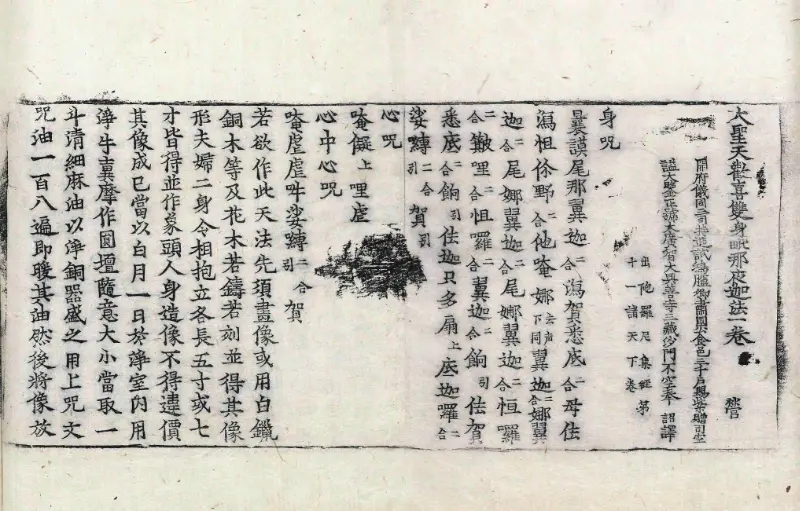 大聖天歡喜雙身毗那夜迦法一卷 營
開府儀同三司特進試鴻臚卿肅國公食邑三千戶賜紫贈司空
謚大鑒正號大廣智大興善寺三藏沙門不空奉 詔譯
出陁羅尼集經第
十一諸天下卷
身呪
曩謨尾那翼迦二合瀉賀悉底二合母佉
瀉怛你野二合他唵娜去声下同翼迦二合娜翼
迦二合尾娜翼迦二合尾娜翼迦二合怛囉
二合皽哩二合怛囉二合翼迦二合餉引佉賀
悉底二合餉引佉迦只多扇上底迦囉二合
娑嚩二合引賀引
心呪
唵儗上哩虐
心中心呪
唵虐虐吽娑嚩二合引賀
若欲作此天法先須畫像或用白鑞
銅木等及花木若鑄若刻並得其像
形夫婦二身令相抱立各長五寸或七
寸皆得並作象頭人身造像不得違價
其像成已當以白月一日於淨室內用
淨牛糞摩作圓壇隨意大小當取一
斗清細麻油以淨銅器盛之用上呪文
呪油一百八遍即暖其油然後將像放